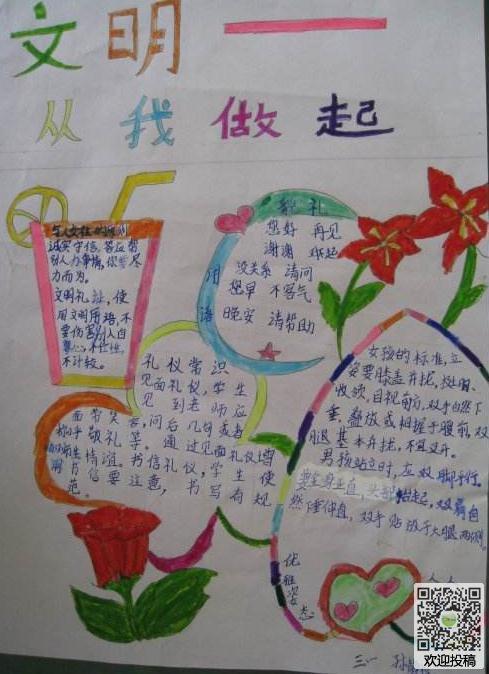 文明——
从我做起
诚实守信，答应帮
别人办事情，你要尽
力而为。
文明礼让，使
用文明用语，不
要伤害别人自
尊心，不任性，
不计较。
礼
您好 再见
谢谢 对不起
没关系 请问
您早 不客气
晚安 请帮助
用
语
礼仪常识
见面礼仪，学生
见到老师应
面带笑容，问后几句或者
敬礼等。通过见面礼仪增
情谊。书信礼仪，学生使
用书信要注意，书写有规
范。
女孩的标准，立
姿要膝盖并拢，挺胸，
收颌，目视前方，双手自然下
垂，叠放或相握于腹前，双
腿基本并拢，不宜叉开。
男孩站立时，应双脚平行。
要全身正直，头部抬起，双肩自
然
双手贴放于大腿两侧。
姿态
三一 孙
欢迎投稿